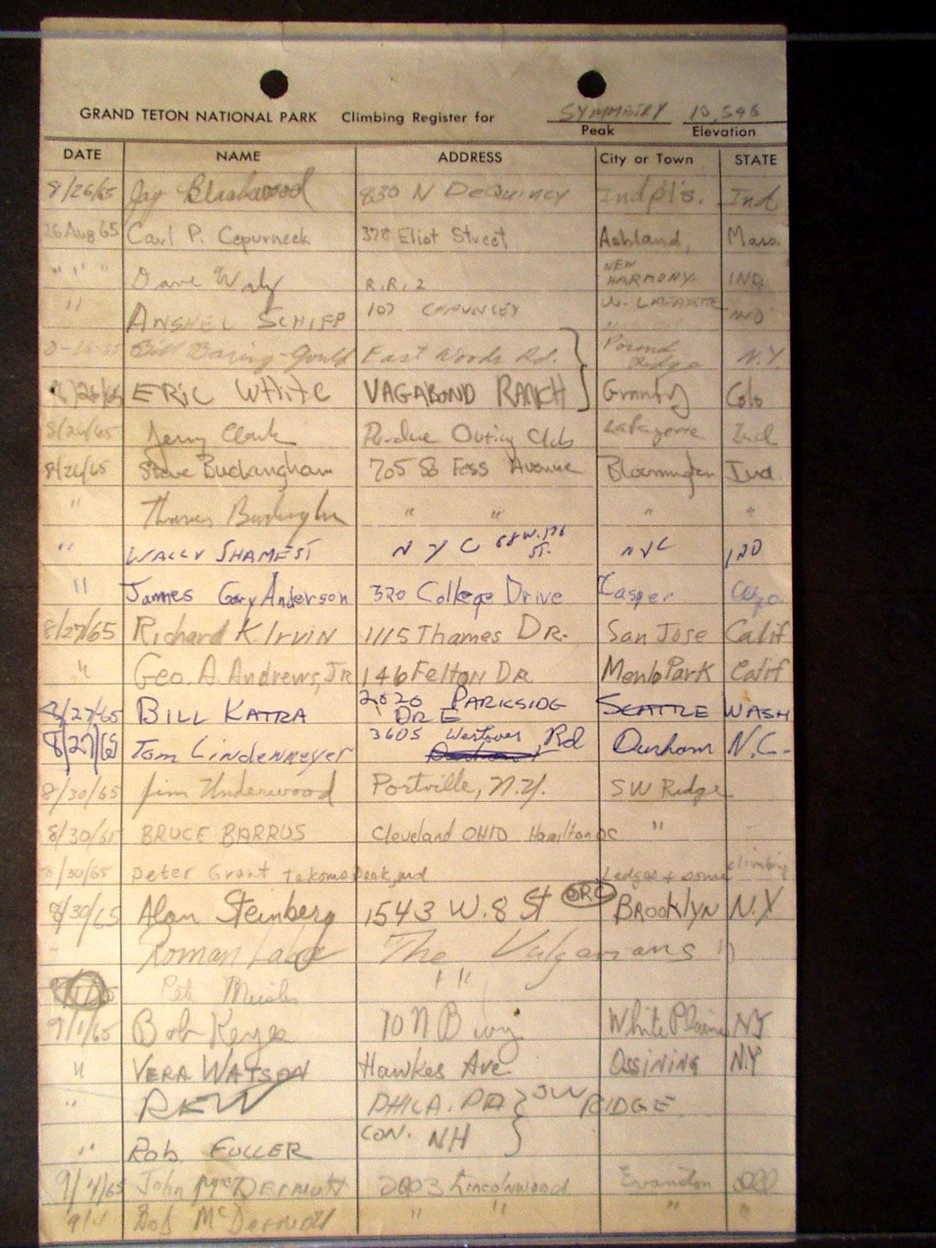 GRAND TETON NATIONAL PARK Climbing Register for SYMMETRY 10,546
Peak Elevation
DATE NAME ADDRESS City or Town STATE
8/26/65 Jay Blackwood 830 N DeQuincy Indpl's. Ind
26 Aug 65 Carl P. Cepurneek 378 Eliot Street Ashland, Mass.
" " " Dave R.R. 2 NEW HARMONY. IND
" ANSHEL SCHIFF 107 W. LAFAYETTE IND
Bill Baring-Gould East Woods Rd. Pound Ridge N.Y.
8/26/65 ERIC WHITE VAGABOND RANCH Granby Colo
8/26/65 Jerry Clark Purdue Outing Club Lafayette Ind
8/26/65 Steve Buckingham 705 So Fess Avenue Bloomington Ind.
" Buckingham " " " "
" WALLY SHAMEST N Y C 68 W. ST. NYC IND
" James Gary Anderson 320 College Drive Casper
8/27/65 Richard K. Irvin 1115 Thames DR. San Jose Calif
" Geo. A. Andrews, JR 146 Felton DR Menlo Park Calif
8/27/65 BILL KATRA 2620 PARKSIDE DR E SEATTLE WASH
8/27/65 Tom Lindenmeyer 3605 Westover Rd Durham N.C.
8/30/65 Jim Underwood Portville, N.Y. SW Ridge
8/30/65 BRUCE BARRUS Cleveland OHIO Hamilton OC "
8/30/65 Peter Grant Takoma Park, md Ledges + some climbing
8/30/65 Alan Steinberg 1543 W. 8 St Brooklyn N.Y
Roman The Vulgarians "
" "
9/1/65 Bob Keyes 10 N Bwy White Plains NY
" VERA WATSON Hawkes Ave. Ossining N.Y
" REW PHILA. PA } SW RIDGE
" Rob. FULLER CON. NH
9/4/65 John McDermott 2003 Lincolnwood Evanston Ill
Bob McDermott " " " "